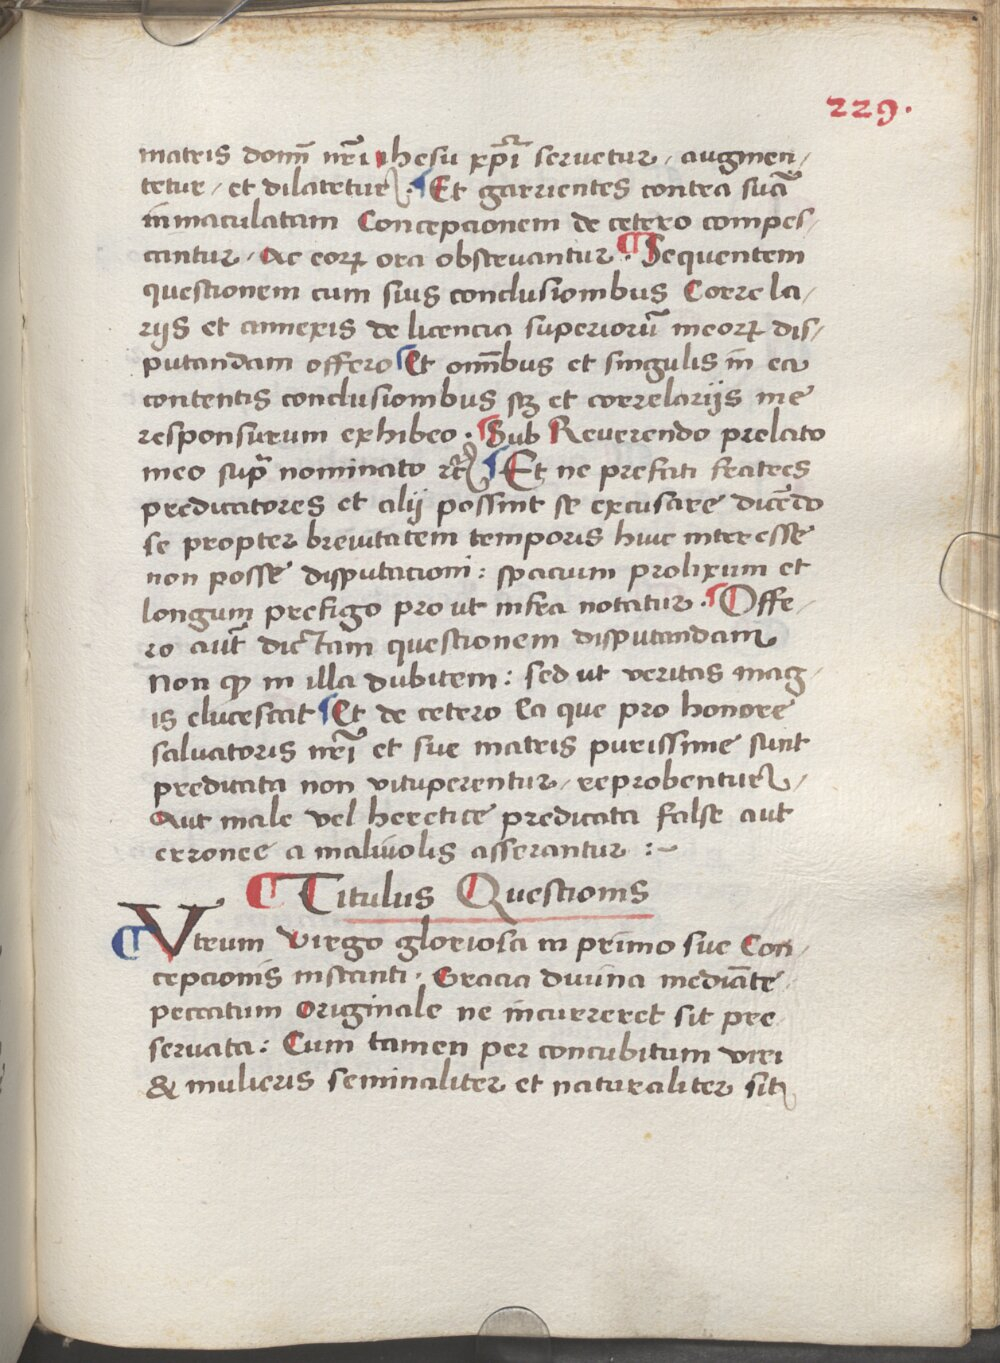 229.
matris domı̄ nr̄i ihesu xp̄i seruetur, augmen/
tetur, et dilatetur. Et garrientes contra suā
inmaculatam Concepcionem de cetero compes/
cantur, Ac eoꝝ ora obstruantur. Sequentem
questionem cum suis conclusionibus Correla/
rijs et annexis de licencia superiorū meoꝝ dis/
putandam offero Et om̄ibus et singulis in ea
contentis conclusionibus sꝫ et correlarijs me
responsurum exhibeo. Sub Reuerendo prelato
meo sup̄ nominato rc̄ Et ne prefati fratres
predicatores et alij possint se excusare dicēdo
se propter breuitatem temporis huic interesse
non posse disputacioni: spacium prolixum et
longum prefigo pro ut infra notatur. Offe/
ro aut̄ dictam questionem disputandam
Non ꝙ in illa dubitem: sed ut veritas mag/
is elucescat Et de cetero Ea que pro honore
saluatoris nr̄i et sue matris purissime sunt
predicata non vituperentur, reprobentur,
Aut male vel heretice predicata false aut
erronee a maliuolis asserantur :~
Titulus Questionis
Vtrum Virgo gloriosa in primo sue Con/
cepcionis instanti, Gracia diuina mediāte
peccatum Originale ne incurreret sit pre
seruata: Cum tamen per concubitum viri
& mulieris seminaliter et naturaliter sit